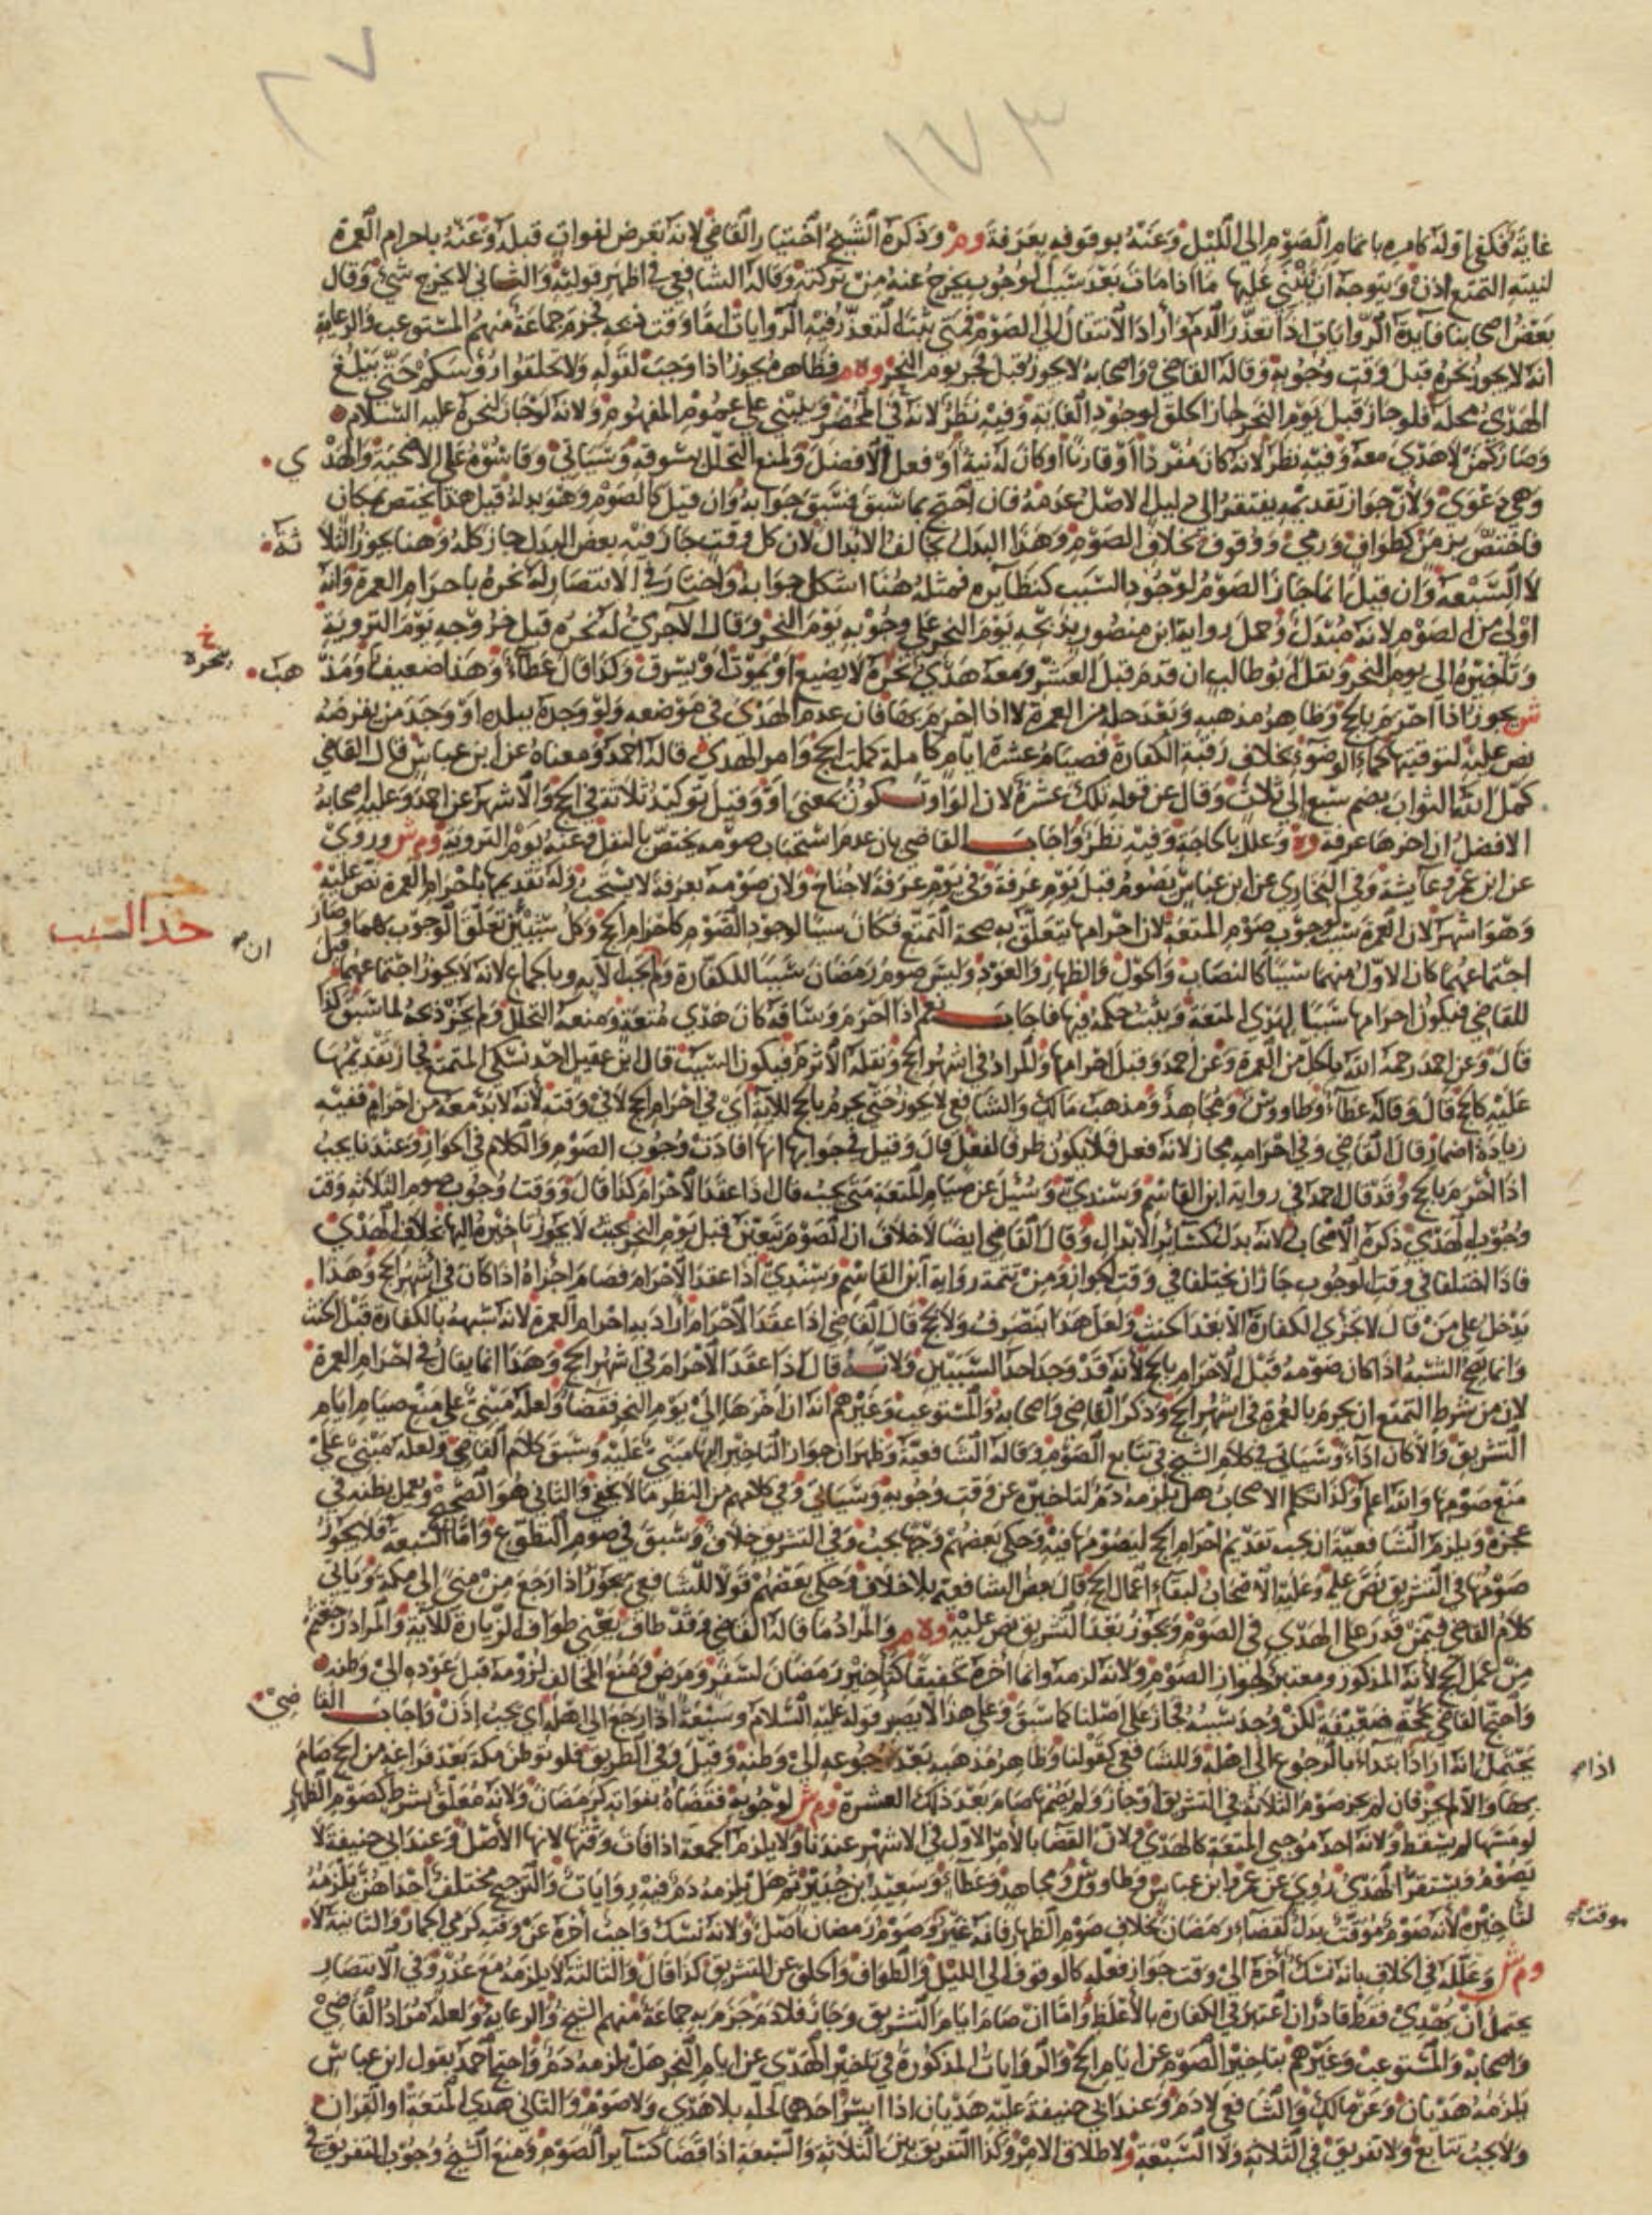 ٢٧
١٧٣
غايته فكفى اوله كامره باتمام الصوم الى الليل وعنه بوقوفه بعرفة وم وذكره الشيخ اختيار القاضي لانه تعرض لفوات قبله وعنه باحرام العمرة
لنية التمتع اذن ويتوجه ان يبني عليها ما اذا مات بعد سبب الوجوب يخرج عنه من تركته وقاله الشافعي في اظهر قوليه والثاني لا يخرج شيء وقال
بعض اصحابنا فايدة الروايات اذا تعذر الدم واراد الانتقال الى الصوم فمتى يثبت التعذر فيه الروايات اما وقت ذبحه فجزم جماعة منهم المستوعب والرعاية
انه لا يجوز نحره قبل وقت وجوبه وقاله القاضي واصحابه لا يجوز قبل فجر يوم النحر وه م فظاهره يجوز اذا وجب لقوله ولا تحلقوا رؤسكم حتى يبلغ
الهدي محله فلو جاز قبل يوم النحر لجاز الحلق لوجود الغاية وفيه نظر لانه في المحصر وينبني على عموم المفهوم ولانه لو جاز لنحره عليه السلام
وصار كمن لا هدي معه وفيه نظر لانه كان مفردا او قارنا او كان له نية او فعل الافضل ولمنع التحلل بسوقه وسياتي وقاسوه على الاضحية والهدي
وهي دعوى ولان جواز تقديمه يفتقر الى دليل الاصل عدمه فان احتج بما سبق فسبق جوابه وان قيل كالصوم وهو بدله قيل هذا يختص بمكان
فاختص بزمن كطواف ورمي ووقوف بخلاف الصوم وهذا البدل يخالف الابدال لان كل وقت جاز فيه بعض البدل جاز كله وهنا يجوز الثلاثة
لا السبعة وان قيل انما جاز الصوم لوجود السبب كنظايره فمثله هنا اشكل جوابه واختار في الانتصار له نحره باحرام العمرة وانه
اولى من الصوم لانه مبدل وحمل رواية ابن منصور بذبحه يوم النحر على وجوبه يوم النحر وقال الآجري له نحره قبل خروجه يوم التروية
وتاخيره الى يوم النحر ونقل ابو طالب ان قدم قبل العشر ومعه هدي نحره لا يضيع او يموت او يسرق وكذا قال عطاء وهذا ضعيف ومذهب
خ
ينحره
ش يجوز اذا احرم بالحج وظاهر مذهبه وبعد حله من العمرة لا اذا احرم بها فان عدم الهدي في موضعه ولو وجده ببلده او وجد من يقرضه
نص عليه لتوقيته كماء الوضوء بخلاف رقبة الكفارة فصيام عشرة ايام كاملة كملت الحج وامر الهدي قاله احمد ومعناه عن ابن عباس قال القاضي
كمل الله الثواب بضم سبع الى ثلاث وقال عن قوله تلك عشرة لان الواو تكون بمعنى او وقيل توكيد ثلاثة في الحج والاشهر عن احمد وعليه اصحابه
الافضل ان اخرها عرفة وه وعلل بالحاجة وفيه نظر واجاب القاضي بان عدم استحباب صومه يختص بالنفل وعنه يوم التروية وم ش وروى
عن ابن عمر وعائشة وفي البخاري عن ابن عباس يصوم قبل يوم عرفة وفي يوم عرفة لا جناح ولان صومه بعرفة لا يستحب وله تقديمها باحرام العمرة نص عليه
حد السبب
وهو اشهر لان العمرة سبب وجوب صوم المتعة لان احرامها يتعلق به صحة التمتع فكان سببا لوجود الصوم كاحرام الحج وكل شيئين تعلق الوجوب بهما وجاز
ان
اجتماعهما كان الاول منهما سببا كالنصاب والحول والظهار والعود وليس صوم رمضان سببا للكفارة ولم يجب الا به وبالجماع لانه لا يجوز اجتماعهما قيل
للقاضي فيكون احرامها سببا لهدي المتعة ويثبت حكمه فيها فاجاب نعم اذا احرم وساقه كان هدي متعة ومنعه التحلل ولم يجز ذبحه لما سبق كذا
قال وعن احمد رحمه الله بالحل من العمرة وعن احمد وقبل احرامها والمراد في اشهر الحج ونقله الاثرم فيكون السبب قال ابن عقيل احد نسكي المتمتع فجاز تقديمها
عليه كالحج قال وقاله عطاء وطاووس ومجاهد ومذهب مالك والشافعي لا يجوز حتى يحرم بالحج للآية اي في احرام الحج لا في وقته لانه لا بد معه من احرام ففيه
زيادة اضمار قال القاضي وفي احرامه مجاز لانه فعل فلا يكون ظرفا لفعل قال وقيل في جوابها انها افادت وجوب الصوم والكلام في الجواز وعندنا يجب
اذا احرم بالحج وقد قال احمد في رواية ابن القاسم وسندي وسئل عن صيام المتعة متى يجب قال اذا عقد الاحرام كذا قال ووقت وجوب صوم الثلاثة وقت
وجوب الهدي ذكره الاصحاب لانه بدل كسائر الابدال وقال القاضي ايضا لا خلاف ان الصوم يتعين قبل يوم النحر بحيث لا يجوز تاخيره اليها بخلاف الهدي
فاذا اختلفا في وقت الوجوب جاز ان يختلفا في وقت الجواز ومن تتمة رواية ابن القاسم وسندي اذا عقد الاحرام فصام اجزاه اذا كان في اشهر الحج وهذا
يدخل على من قال لا تجزي الكفارة الا بعد الحنث ولعل هذا ينصرف ولا يحج قال القاضي اذا عقد الاحرام اراد به احرام العمرة لانه شبهه بالكفارة قبل الحنث
وانما يصح الشبه اذا كان صومه قبل الاحرام بالحج لانه قد وجد احد السببين ولانه قال اذا عقد الاحرام في اشهر الحج وهذا انما يقال في احرام العمرة
لان من شرط التمتع ان يحرم بالعمرة في اشهر الحج وذكر القاضي واصحابه والمستوعب وغيرهم انه ان اخرها الى يوم النحر فقضاء ولعله مبني على منع صيام ايام
التشريق والا كان اداء وسياتي في كلام الشيخ في تتابع الصوم وقاله الشافعية وظهر ان جواز التاخير اليها مبني عليه وسبق كلام القاضي ولعله مبني على
منع صومها والله اعلم وكذا تكلم الاصحاب هل يلزمه دم لتاخيره عن وقت وجوبه وسياتي وفي كلامهم من النظر ما لا يخفى والثاني هو الصحيح ويعمل بظنه في
عجزه ويلزم الشافعية ان يجب تقديم احرام الحج ليصومها فيه وحكى بعضهم وجها يجب وفي التشريق خلاف وسبق في صوم التطوع واما السبعة فلا يجوز
صومها في التشريق نص عليه وعليه الاصحاب لبقاء اعمال الحج قال بعض الشافعية بلا خلاف وحكى بعضهم قولا للشافعي يجوز اذا رجع من منى الى مكة وياتي
كلام القاضي فيمن قدر على الهدي في الصوم ويجوز بعد التشريق نص عليه وه م والمراد ما قاله القاضي وقد طاف يعني طواف الزيارة للآية والمراد رجعتم
من عمل الحج لانه المذكور ومعتبر لجواز الصوم ولانه لزمه وانما اخره تخفيفا كتاخير رمضان لسفر ومرض ومنع المخالف لزومه قبل عوده الى وطنه
واحتج القاضي بحجة ضعيفة لكن وجد سببه فجاز على اصلنا كما سبق وعلى هذا لا يصر قوله عليه السلام وسبعة اذا رجع الى اهله اي يجب اذن واجاب القاضي
يحتمل انه اراد ابتداء بالرجوع الى اهله وللشافعي كقولنا وظاهر مذهبه بعد رجوعه الى وطنه وقيل وفي الطريق فلو توطن مكة بعد فراغه من الحج صام
اذا
بها والا لم يجز فان لم يجز صوم الثلاثة في التشريق او جاز ولم يصمها صام بعد ذلك العشرة وم ش لوجوبه فقضاه بفواته كرمضان ولانه معلق بشرط كصوم الظهار
لو مسها لم يسقط ولانه احد موجبي المتعة كالهدي ولان القضا بالامر الاول في الاشهر عندنا ولا يلزم الجمعة اذا فات وقتها لانها الاصل وعند ابي حنيفة لا
يصوم ويستقر الهدي روي عن عمر وابن عباس وطاووس ومجاهد وعطاء وسعيد ابن جبير ثم هل يلزمه دم فيه روايات والترجيح مختلف احداهن يلزمه
موقت
لتاخيره لانه صوم موقت بدل كقضاء رمضان بخلاف صوم الظهار فانه غير وصوم رمضان اصل ولانه نسك واجب اخره عن وقته كرمي الجمار والثانية لا
وم ش وعلله في الخلاف بانه نسك اخره الى وقت جواز فعله كالوقوف الى الليل والطواف والحلق عن التشريق كذا قال والثالثة لا يلزمه مع عذر وفي الانتصار
يحتمل ان يهدي فقط قادر ان اعتبر في الكفارة بالاغلظ واما ان صام ايام التشريق وجاز فلا دم جزم به جماعة منهم الشيخ والرعاية ولعله مراد القاضي
واصحابه والمستوعب وغيرهم بتاخير الصوم عن ايام الحج والروايات المذكورة في تاخير الهدي عن ايام النحر هل يلزمه دم واحتج احمد بقول ابن عباس
يلزمه هديان وعن مالك والشافعي لا دم وعند ابي حنيفة عليه هديان اذا ايسر احدهما لحله بلا هدي ولا صوم والثاني هدي المتعة او القران
ولا يجب تتابع ولا تفريق في الثلاثة ولا السبعة ولاطلاق الامر وكذا التفريق بين الثلاثة والسبعة اذا قضا كسائر الصوم ومنع الشيخ وجوب التفريق في